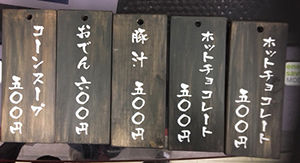 ホットチョコレート
五〇〇円
ホットチョコレート
五〇〇円
豚汁
五〇〇円
おでん
六〇〇円
コーンスープ
五〇〇円